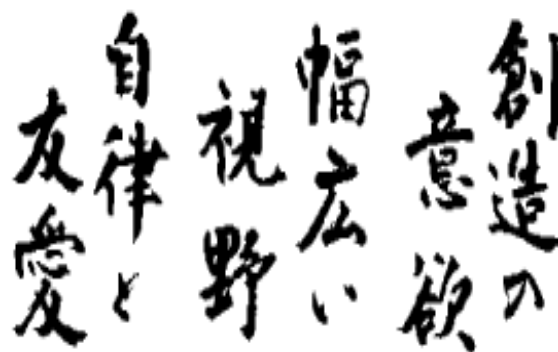 創造の
意欲
幅広い
視野
自律と
友愛